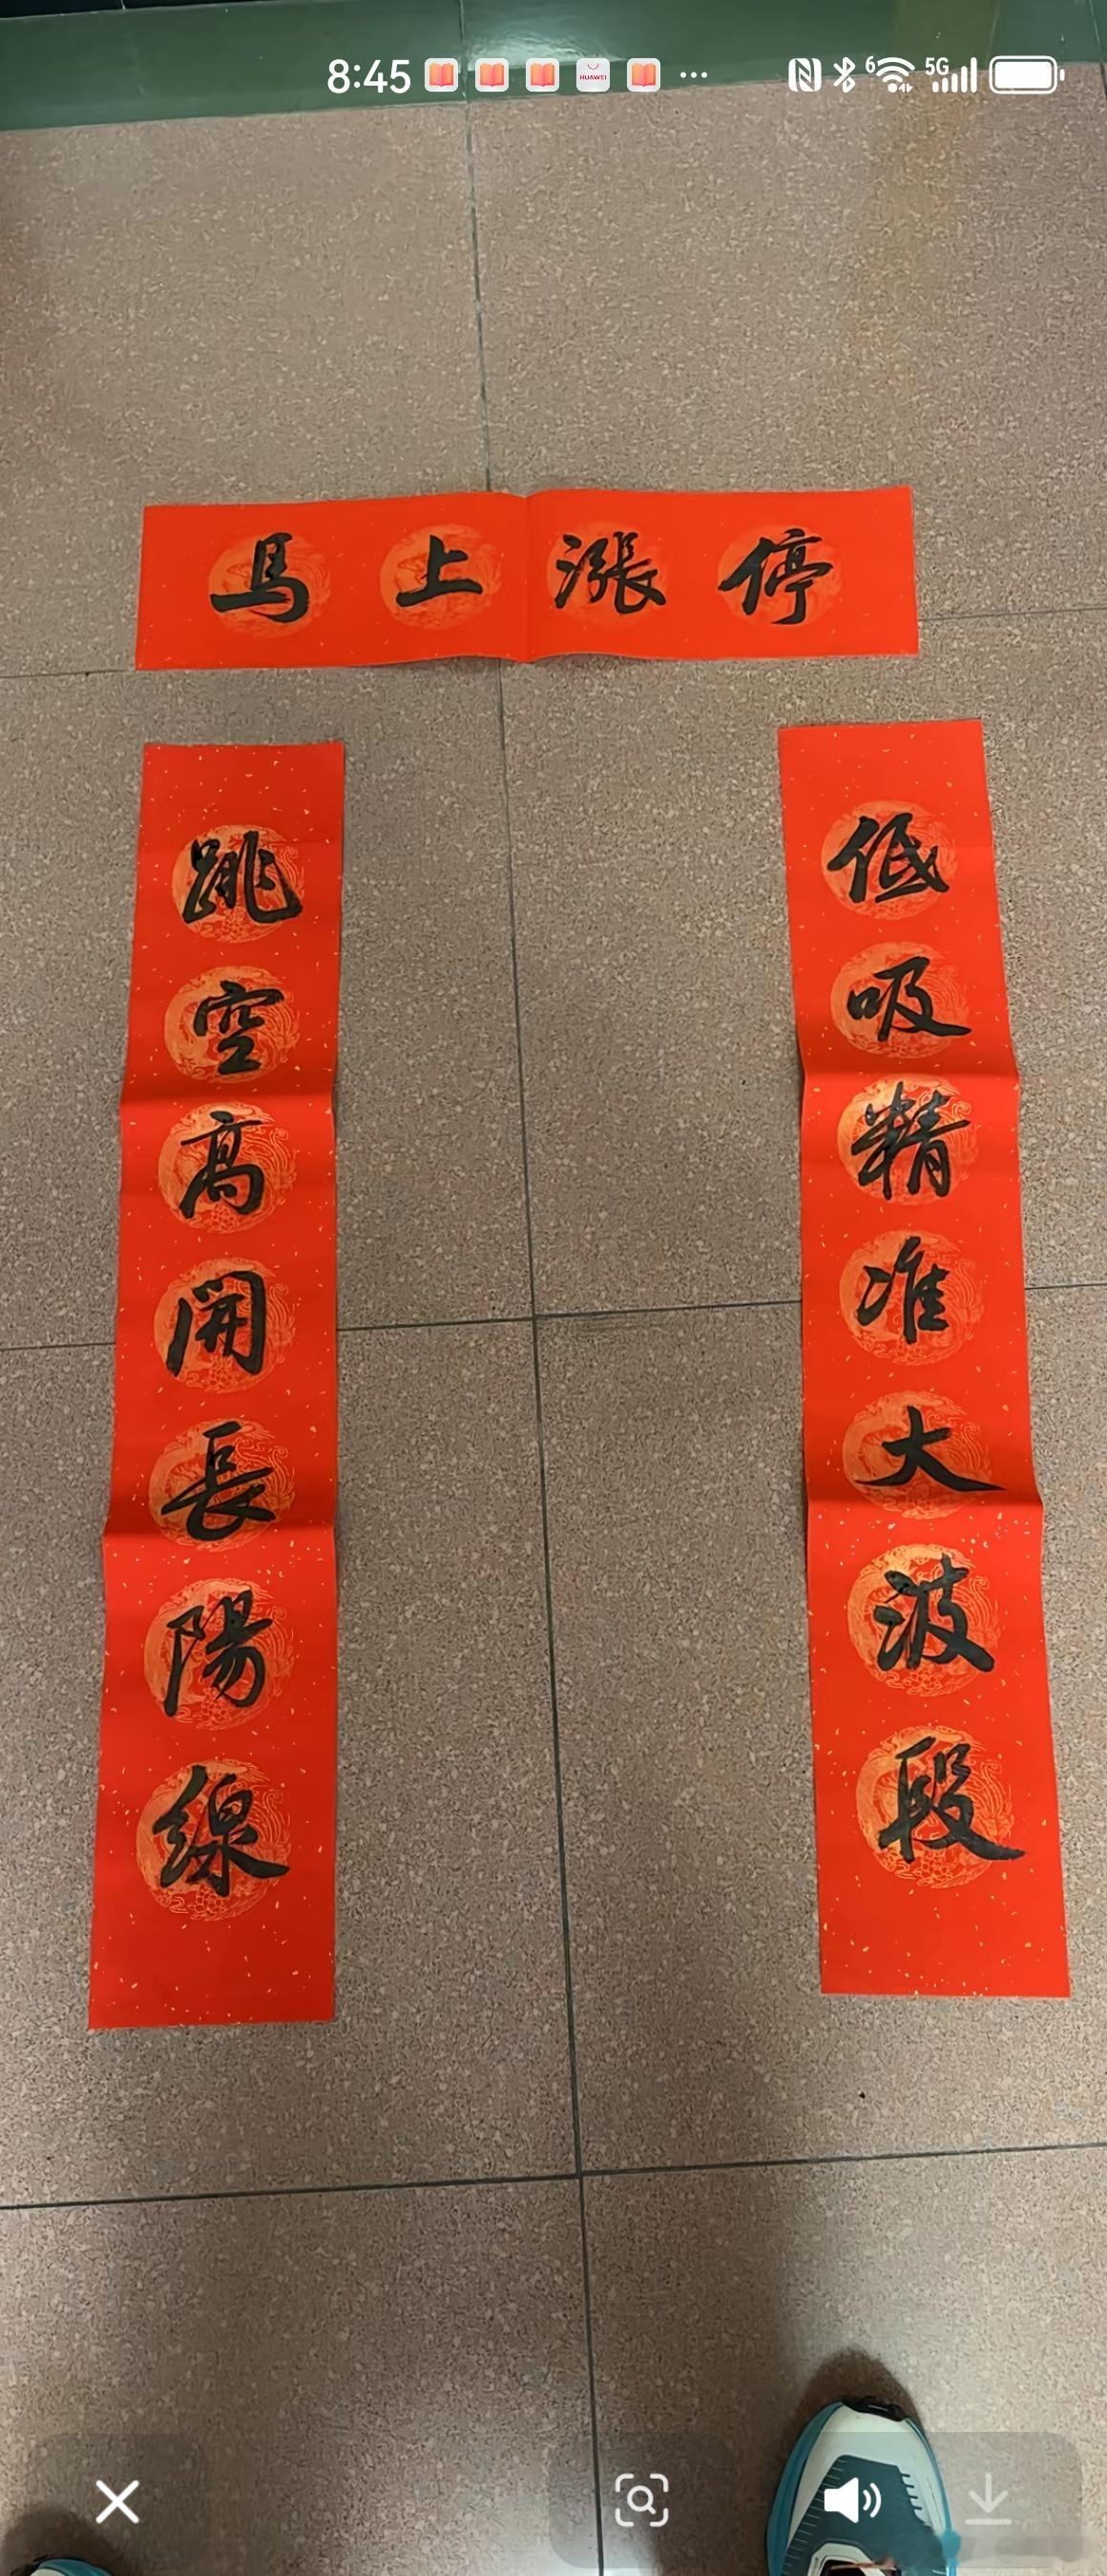 8:45
HUAWEI
6
5G
马上漲停
低吸精准大波段
跳空高開長陽線